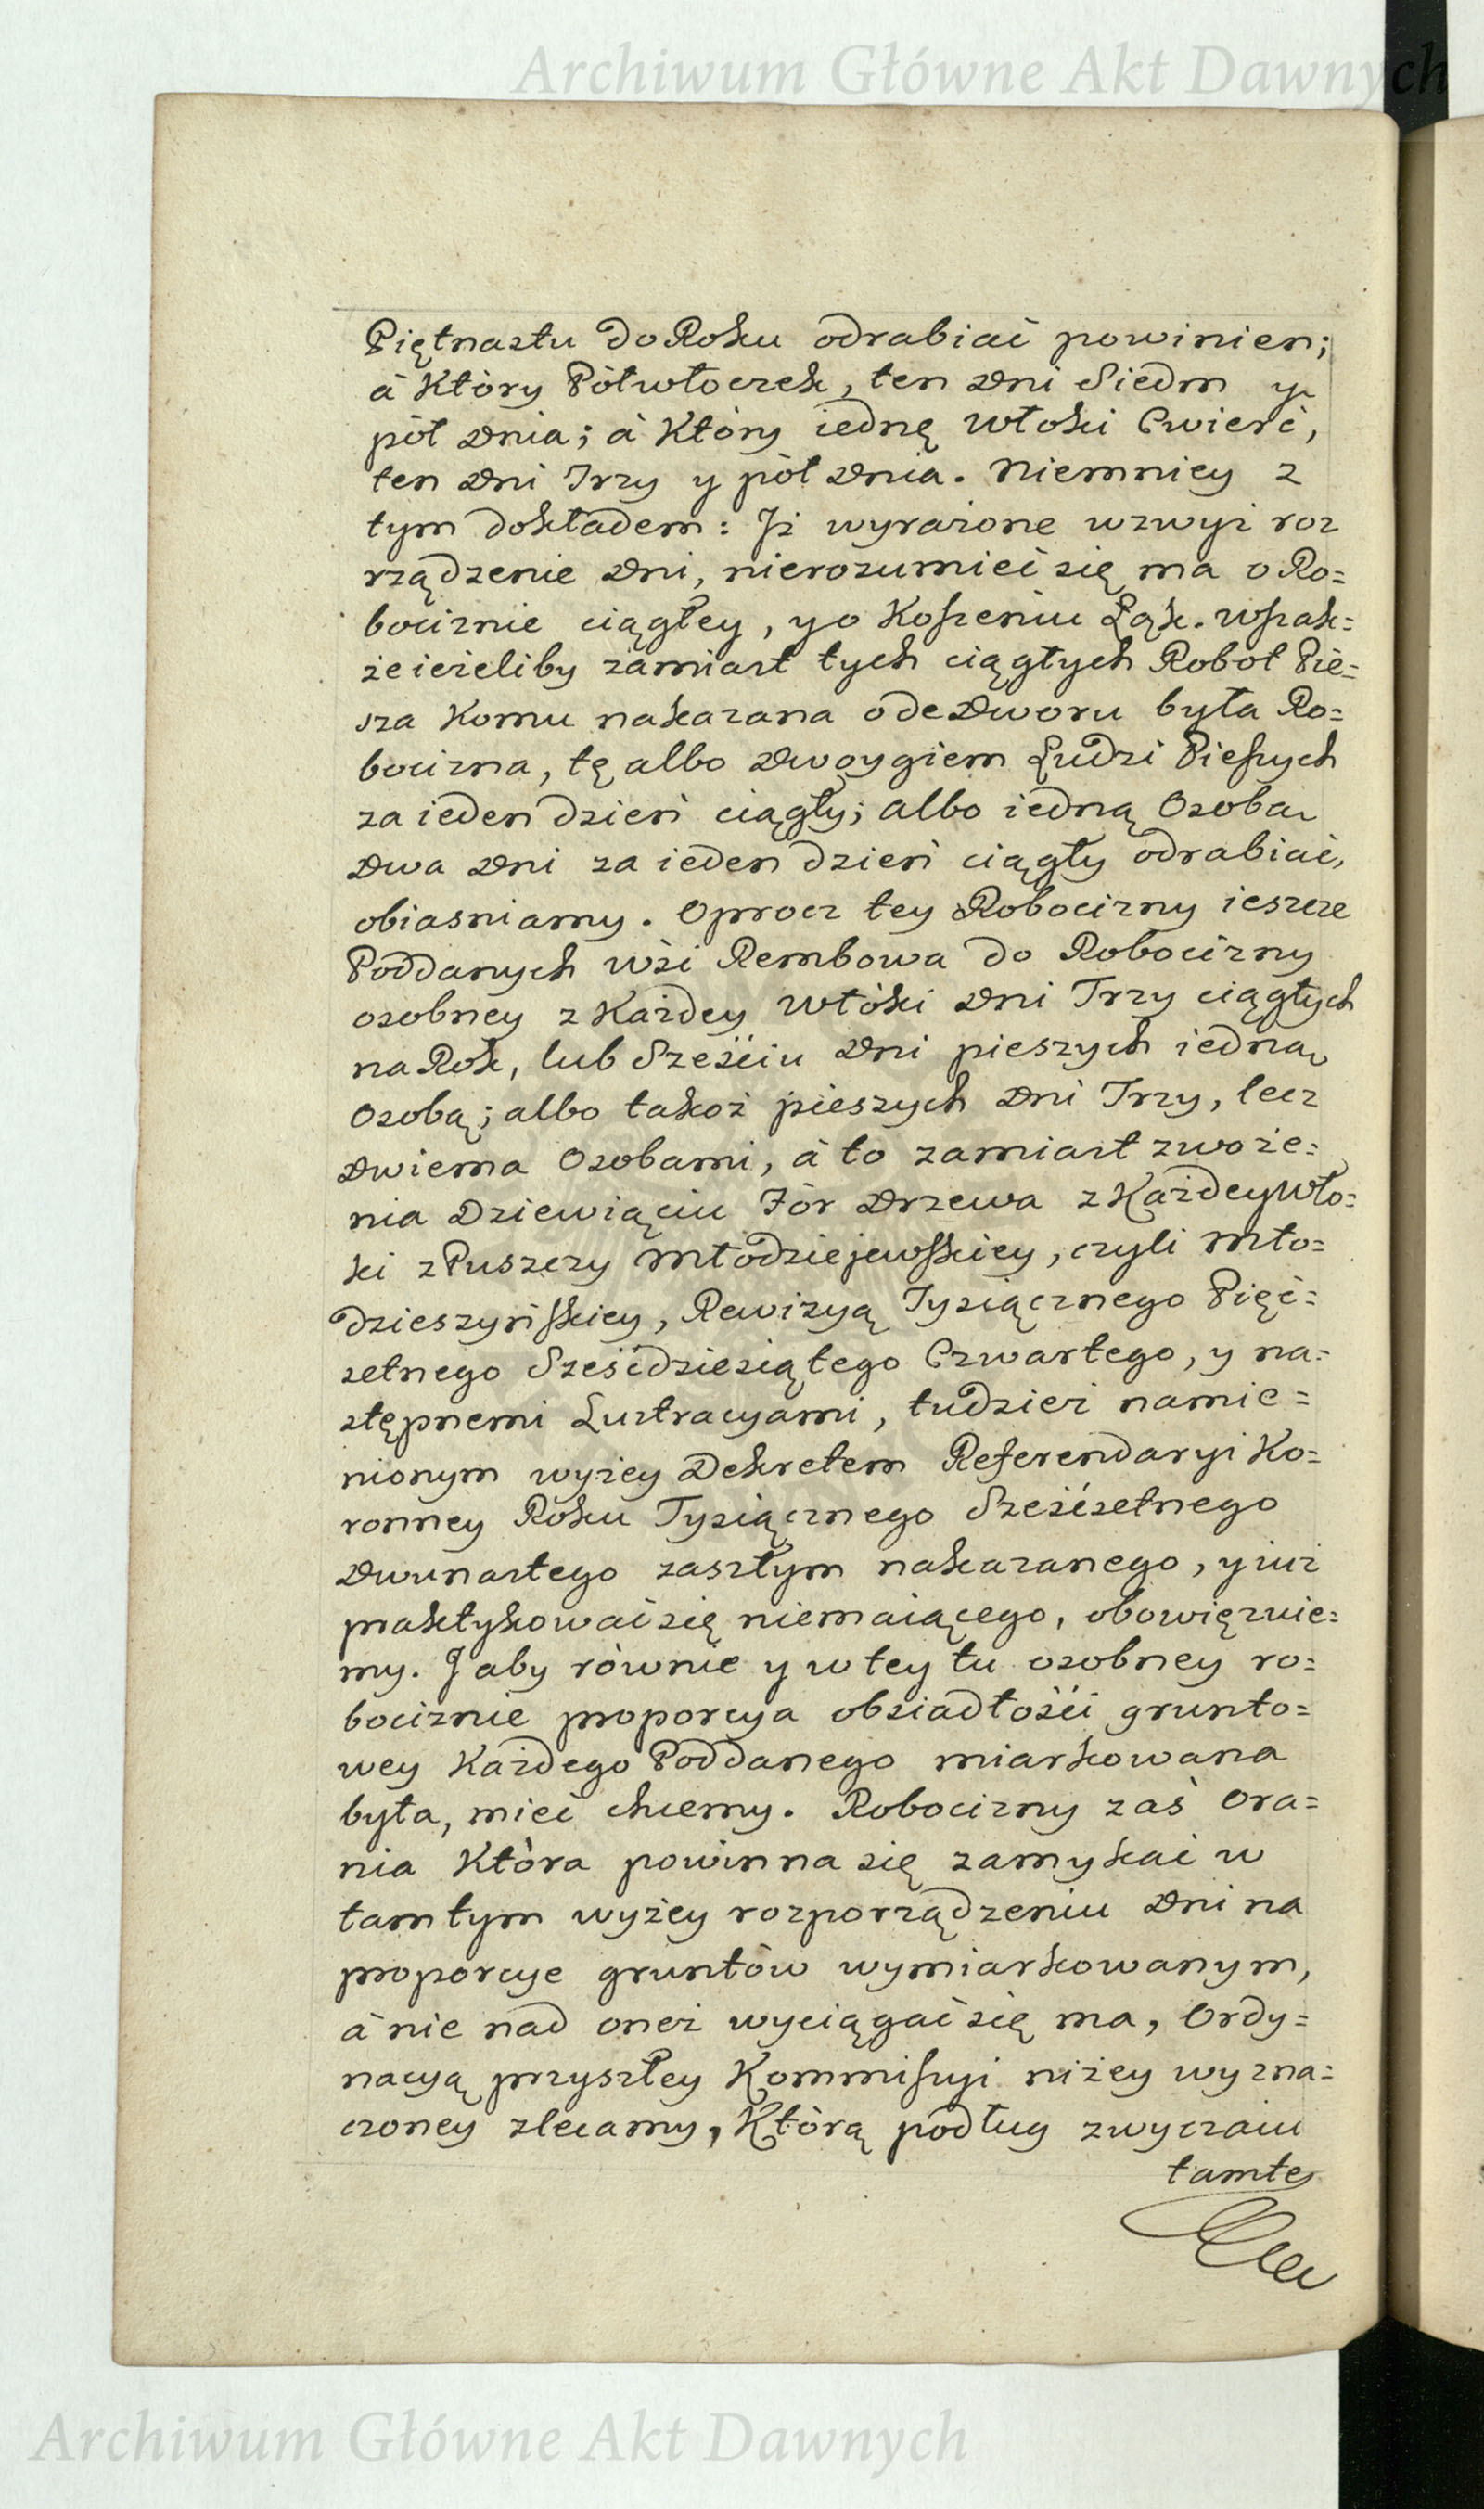 Archiwum Główne Akt Dawnych
Piętnastu do Roku odrabiać powinien;
à Który Półwłoczek, ten Dni Siedm y
pół Dnia; à Który iednę Włoki Cwierć,
ten Dni Trzy y pół Dnia. Niemniey z
tym dokładem: Jż wyrażone wzwyż roz
rządzenie Dni, nierozumieć się ma o Ro=
bociznie ciągłey, y o Koszeniu Łąk. Wszak=
że ieżeliby zamiast tych ciągłych Robot Pie=
sza Komu nakazana ode Dworu była Ro=
bocizna, tę albo Dwoygiem Ludzi Pieszych
za ieden dzień ciągły; albo iedną Osobą
Dwa Dni za ieden dzień ciągły odrabiać,
obiasniamy. Oprocz tey Robocizny ieszcze
Poddanych Wsi Rembowa do Robocizny
osobney z Każdey Włóki Dni Trzy ciągłych
na Rok, lub Sześciu Dni pieszych iedną
Osobą; albo takoż pieszych Dni Trzy, lecz
Dwiema Osobami, à to zamiast zwoże=
nia Dziewiąciu Fór Drzewa z Każdey Wło=
ki z Puszczy Młodziejewskiey, czyli Mło=
dzieszyńskiey, Rewizyą Tysiącznego Pięć=
setnego Sześćdziesiątego Czwartego, y na=
stępnemi Lustracyami, tudzież namie=
nionym wyżey Dekretem Referendaryi Ko=
ronney Roku Tysiącznego Sześćsetnego
Dwunastego zaszłym nakazanego, y iuż
praktykować się niemaiącego, obowięzuie=
my. J aby równie y w tey tu osobney ro=
bociznie proporcya obsiadłości grunto=
wey Każdego Poddanego miarkowana
była, mieć chcemy. Robocizny zaś Ora=
nia Która powinna się zamykać w
tamtym wyżey rozporządzeniu Dni na
proporcye gruntów wymiarkowanym,
à nie nad oneż wyciągać się ma, Ordy=
nacyą przyszłey Kommissyi niżey wyzna=
czoney zlecamy, Którą podług zwyczaiu
tamte
Archiwum Główne Akt Dawnych